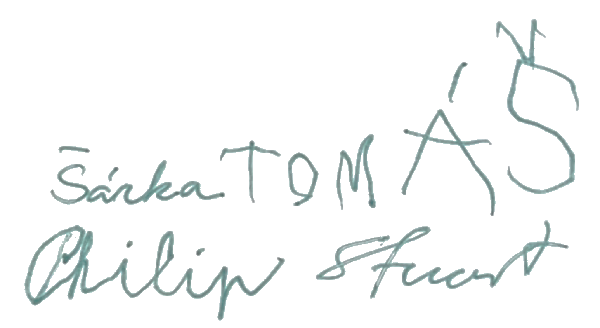 Šárka TOMÁŠ
Philip Stuart